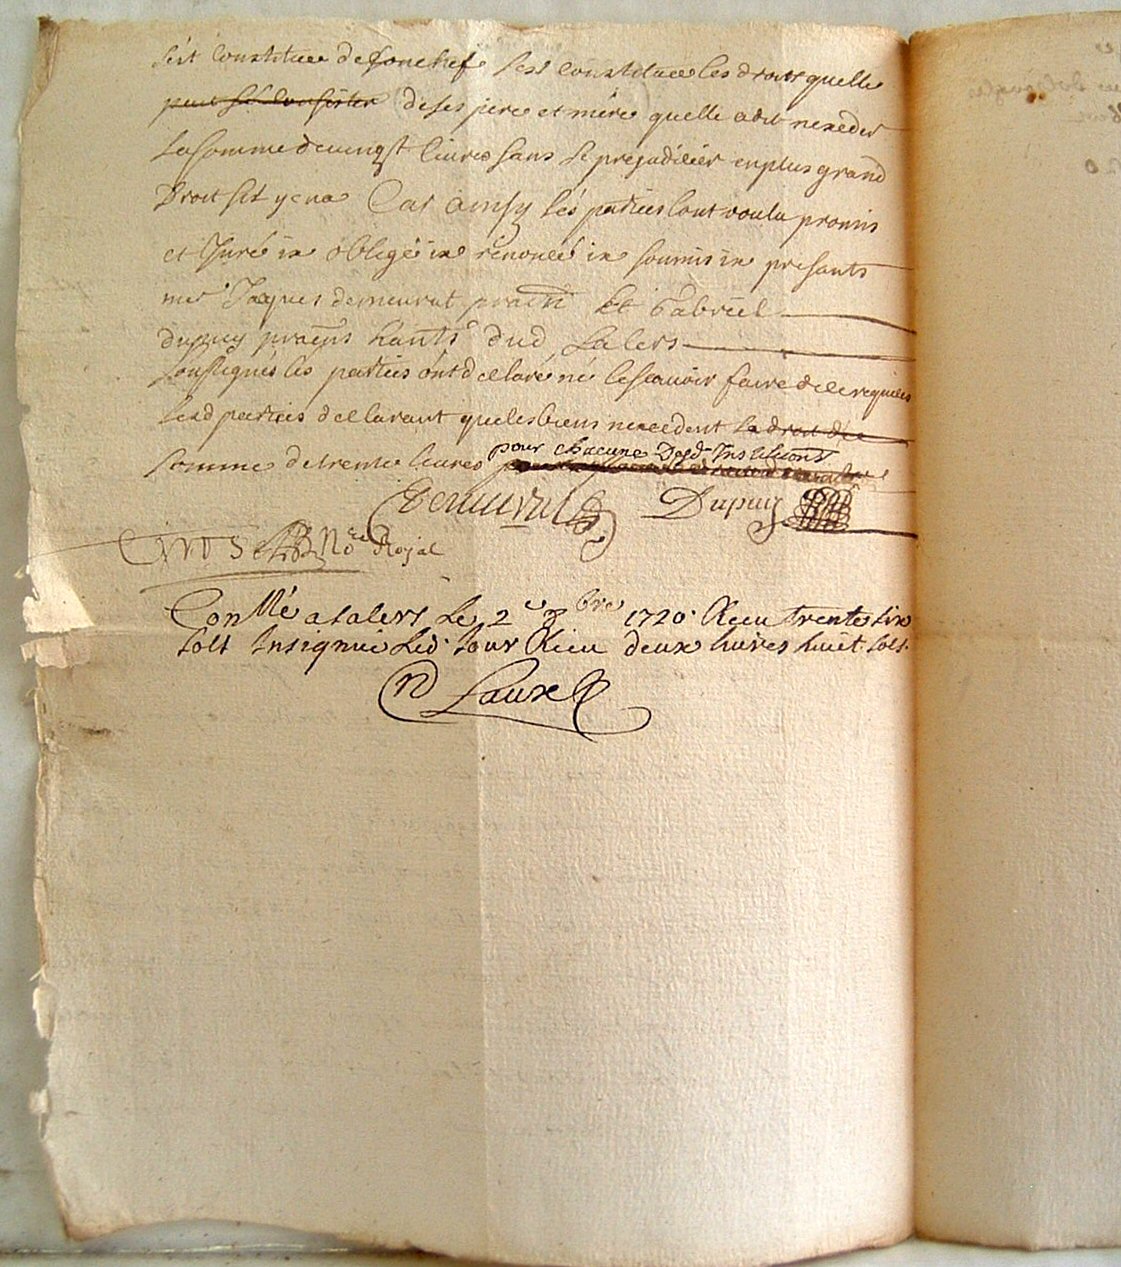 sest constituee de son chef sest constituee les droits quelle
peut consister de ses pere et mere quelle a dit nexeder
la somme de vingt livres sans se prejudicier en plus grand
Droit sil y en a Car ainsy les parties lont voulu promis
et Juré in obligé in renoncé in soumis in presants
me Jaques demurat praen Et Gabriel
dupuy praens hants dud Salers
soussignés les parties ont declaré ne le scavoir faire de ce requises
lesd parties declarant que les biens nexcedent la
somme de trente livres pour chacune Desd Institutions
Demurat Dupuy
Royal
Conllé a Salers Le 2e 8bre 1720 Receu trente six
sols Insignué Led Jour Receu deux livres huit sols